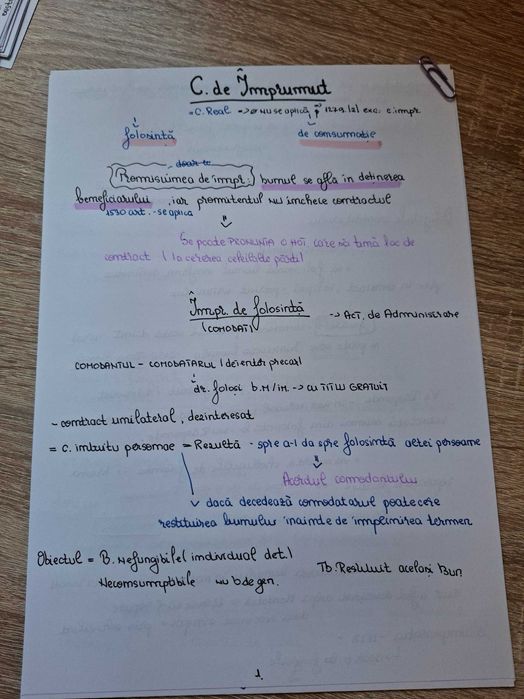 C. de Împrumut
= C. Real → nu se aplică 1279 (2) exc. c. impr.
folosință de consumație
doar te
Promisiunea de impr: bunul se afla in deținerea
beneficiarului, iar promitentul nu incheie contractul
1530 art. - se aplica
Se poate PRONUNȚA O HOT care să țină loc de
contract (la cererea celeilalte părți)
Împr. de folosință → ACT. de Administrare
(COMODAT)
COMODANTUL - COMODATARUL (detentor precar)
dr. folosi b.M/im. → CU TITLU GRATUIT
- contract unilateral, dezinteresat
= c. intuitu personae = Rezultă - spre a-l da spre folosință altei persoane
Acordul comodantului
dacă decedează comodatarul poate cere
restituirea bunului inainde de implinirea termen
Obiectul = B. Nefungibile (individual det.)
Neconsumptibile nu b de gen. Tb. Restituit același Bun
1.